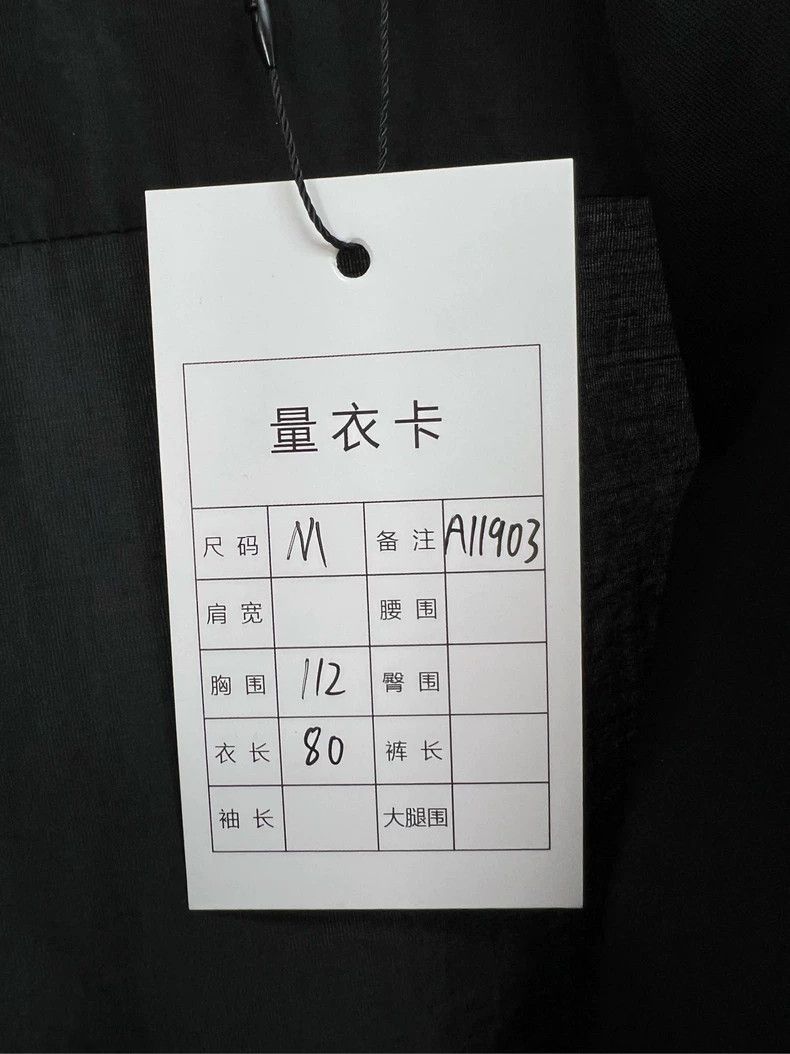 量衣卡
尺码 M 备注 A11903
肩宽 腰围
胸围 112 臀围
衣长 80 裤长
袖长 大腿围